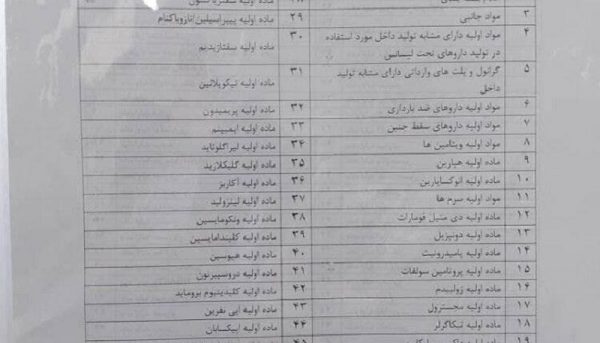 ۳ مواد جانبی ۲۹ ماده اولیه پیپراسیلین/تازوباکتام
۴ مواد اولیه دارای مشابه تولید داخل مورد استفاده ۳۰ ماده اولیه سفتازیدیم
در تولید داروهای تحت لیسانس
۵ گرانول و پلت های وارداتی دارای مشابه تولید ۳۱ ماده اولیه تیکوپلانین
داخل
۶ مواد اولیه داروهای ضد بارداری ۳۲ ماده اولیه پریمیدون
۷ مواد اولیه داروهای سقط جنین ۳۳ ماده اولیه ایمیپنم
۸ مواد اولیه ویتامین ها ۳۴ ماده اولیه لیراگلوتاید
۹ ماده اولیه هپارین ۳۵ ماده اولیه گلیکلازید
۱۰ ماده اولیه انوکساپارین ۳۶ ماده اولیه آکاربز
۱۱ مواد اولیه سرم ها ۳۷ ماده اولیه لینزولید
۱۲ ماده اولیه دی متیل فومارات ۳۸ ماده اولیه ونکومایسین
۱۳ ماده اولیه دونپزیل ۳۹ ماده اولیه کلیندامایسین
۱۴ ماده اولیه پامیدرونیت ۴۰ ماده اولیه هیوسین
۱۵ ماده اولیه پروتامین سولفات ۴۱ ماده اولیه دروسپیرنون
۱۶ ماده اولیه زولپیدم ۴۲ ماده اولیه کلیدینیوم بروماید
۱۷ ماده اولیه مجسترول ۴۳ ماده اولیه اپی نفرین
۱۸ ماده اولیه تیکاگرلر ۴۴ ماده اولیه اپیکسابان
۱۹ ۴۵